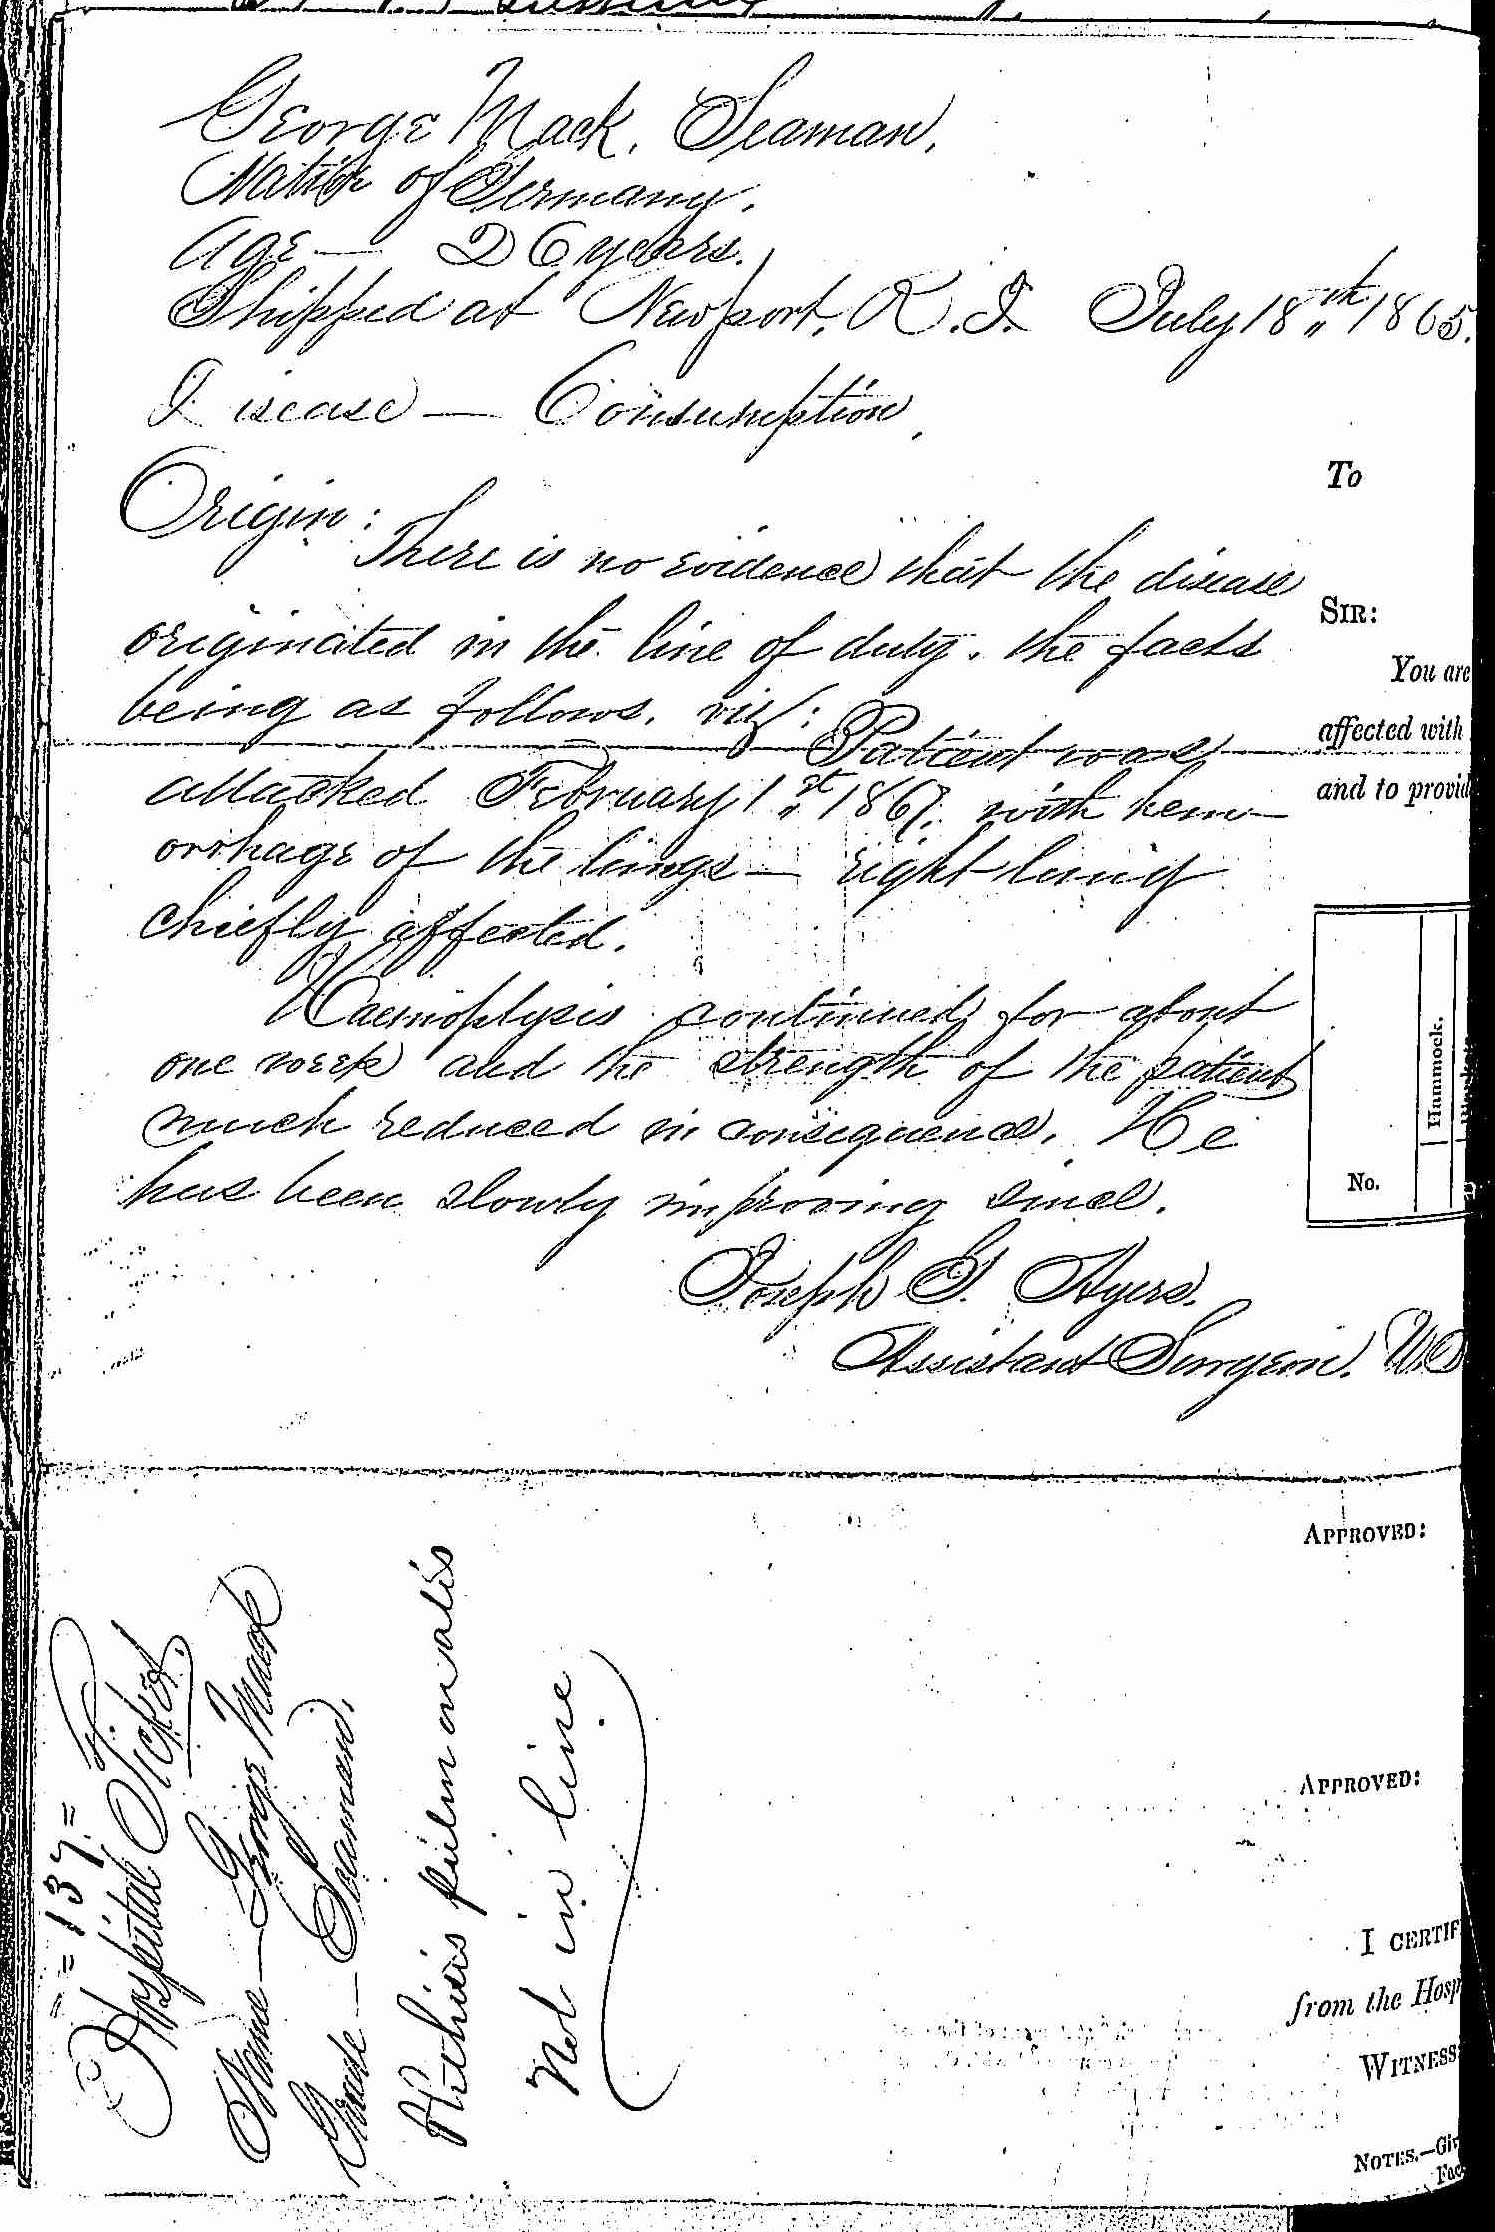 George Mack, Seaman,
Native of Germany.
Age — 26 years.
Shipped at Newport, R.I. July 18th 1865.
Disease — Consumption,
Origin:
There is no evidence that the disease
originated in the line of duty. the facts
being as follows. viz: Patient was
attacked February 1st 1867. with hem-
orrhage of the lungs — right lung
chiefly affected.
Haemoptysis continued for about
one week and the strength of the patient
much reduced in consequence. He
has been slowly improving since.
Joseph G. Ayers.
Assistant Surgeon. U.S
To
SIR:
You are
affected with
and to provid
Hammock.
No.
APPROVED:
APPROVED:
I CERTIF
from the Hosp
WITNESS
NOTES.—Giv
Fac
= 137 =
Hospital Ticket.
Name — George Mack
Grade — Seaman.
Phthisis pulmonalis
Not in line